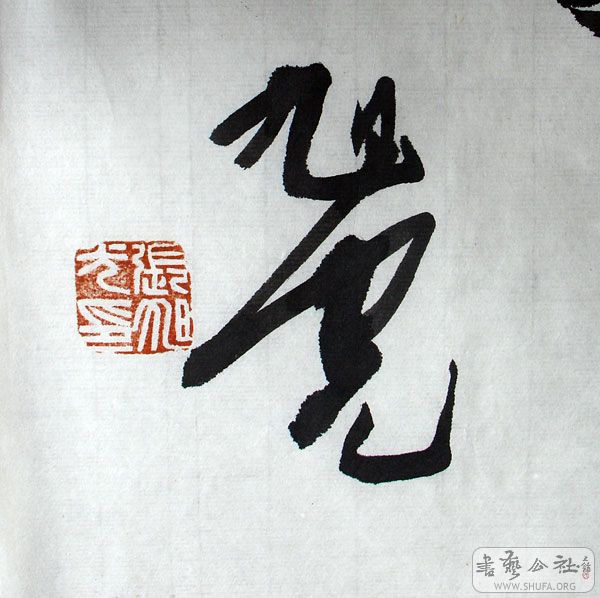 旭光
張旭
光印
書藝公社
WWW.SHUFA.ORG